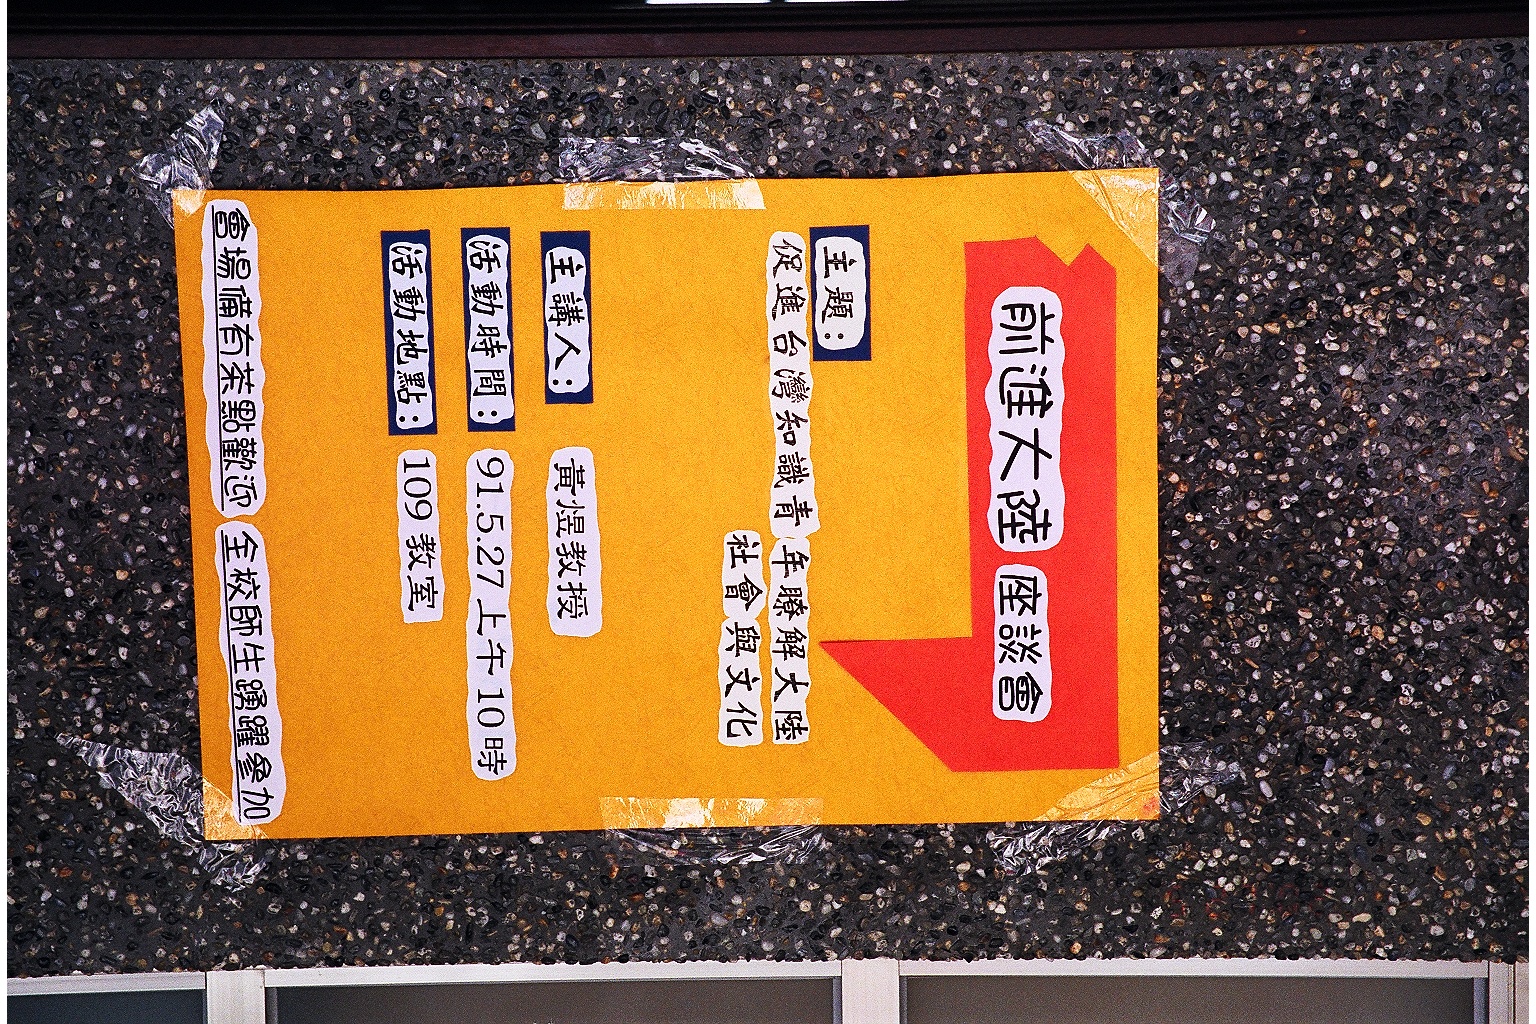 前進大陸 座談會
主題:
促進台灣知識青年瞭解大陸
社會與文化
主講人: 黃煜教授
活動時間: 91.5.27 上午 10 時
活動地點: 109 教室
會場備有茶點歡迎 全校師生踴躍參加